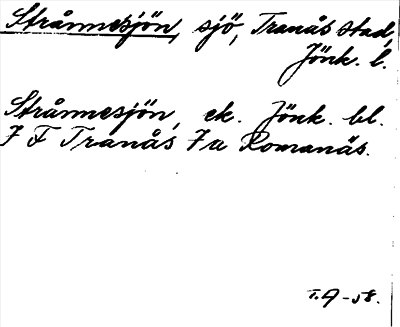 Strånnesjön, sjö, Tranås stad,
Jönk. l.
Strånnesjön, ek. Jönk. bl.
7 F Tranås 7a Romanäs.
T.A-58.